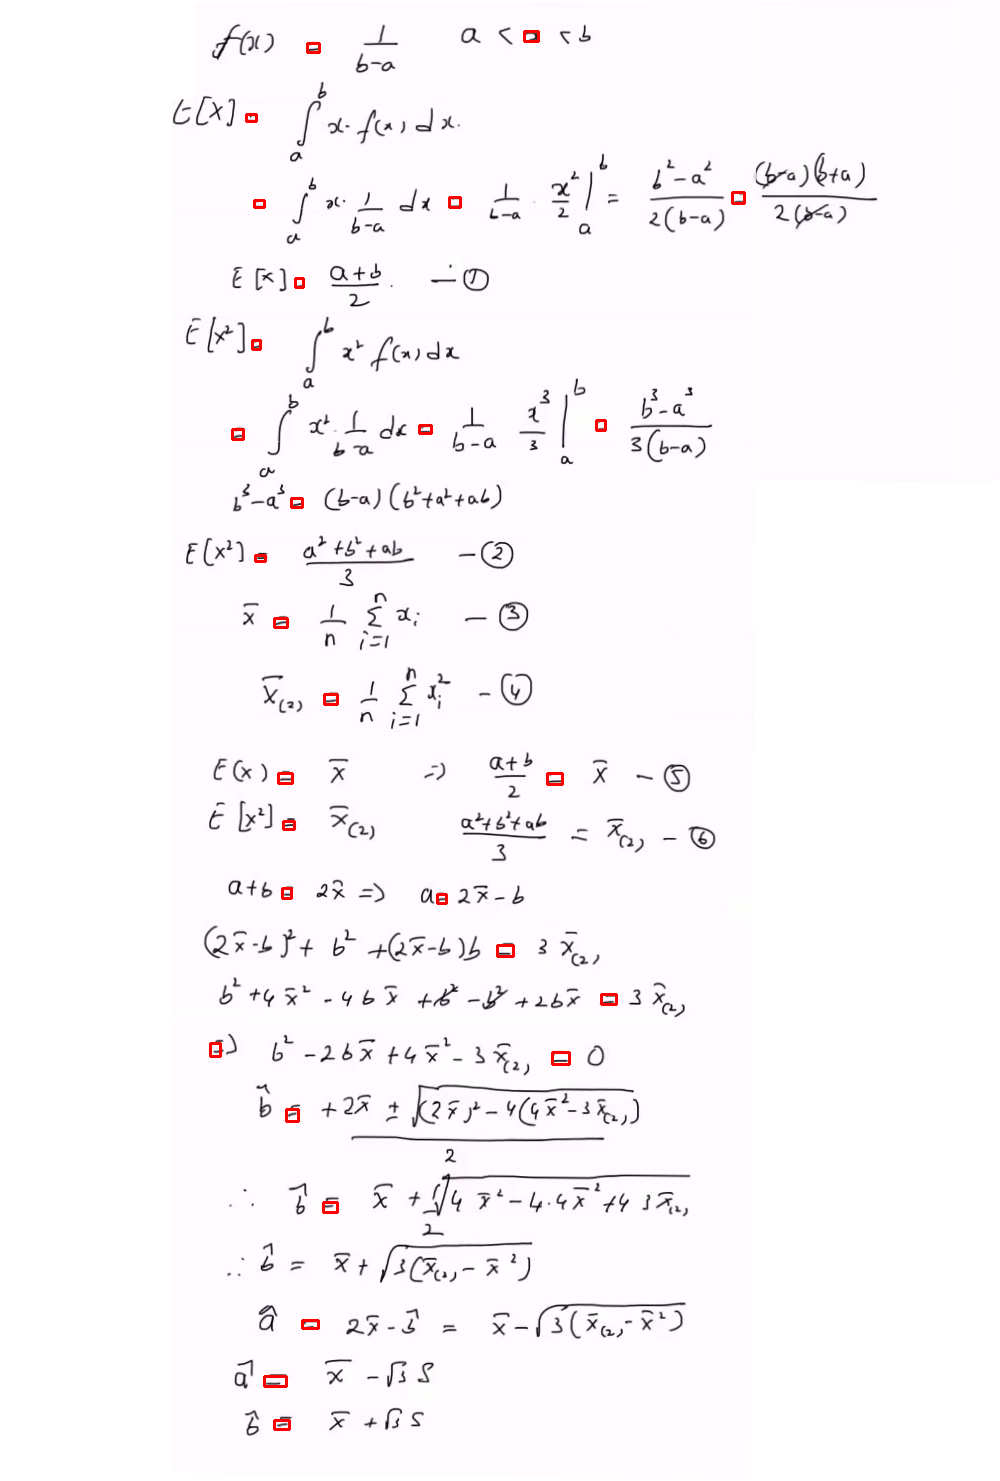 f(x) = 1/(b-a)   a < x < b
E[X] = ∫_a^b x · f(x) dx.
= ∫_a^b x · 1/(b-a) dx = 1/(b-a) · x²/2 |_a^b = (b²-a²)/(2(b-a)) = ((b-a)(b+a))/(2(b-a))
E[X] = (a+b)/2 . — ①
E[X²] = ∫_a^b x² f(x) dx
= ∫_a^b x² · 1/(b-a) dx = 1/(b-a) x³/3 |_a^b = (b³-a³)/(3(b-a))
b³-a³ = (b-a)(b²+a²+ab)
E[X²] = (a²+b²+ab)/3 — ②
x̄ = 1/n Σ_{i=1}^n x_i — ③
x̄_(2) = 1/n Σ_{i=1}^n x_i² — ④
E(x) = x̄ ⇒ (a+b)/2 = x̄ — ⑤
E[X²] = x̄_(2)   (a²+b²+ab)/3 = x̄_(2) — ⑥
a+b = 2x̄ ⇒ a = 2x̄-b
(2x̄-b)² + b² + (2x̄-b)b = 3 x̄_(2)
b² + 4x̄² - 4bx̄ + b² - b² + 2bx̄ = 3 x̄_(2)
⇒ b² - 2bx̄ + 4x̄² - 3x̄_(2) = 0
b̂ = (+2x̄ ± √((2x̄)² - 4(4x̄² - 3x̄_(2))))/2
∴ b̂ = x̄ + √(4x̄² - 4·4x̄² + 4 3x̄_(2))/2
∴ b̂ = x̄ + √(3(x̄_(2) - x̄²))
â = 2x̄ - b̂ = x̄ - √(3(x̄_(2) - x̄²))
â = x̄ - √3 S
b̂ = x̄ + √3 S